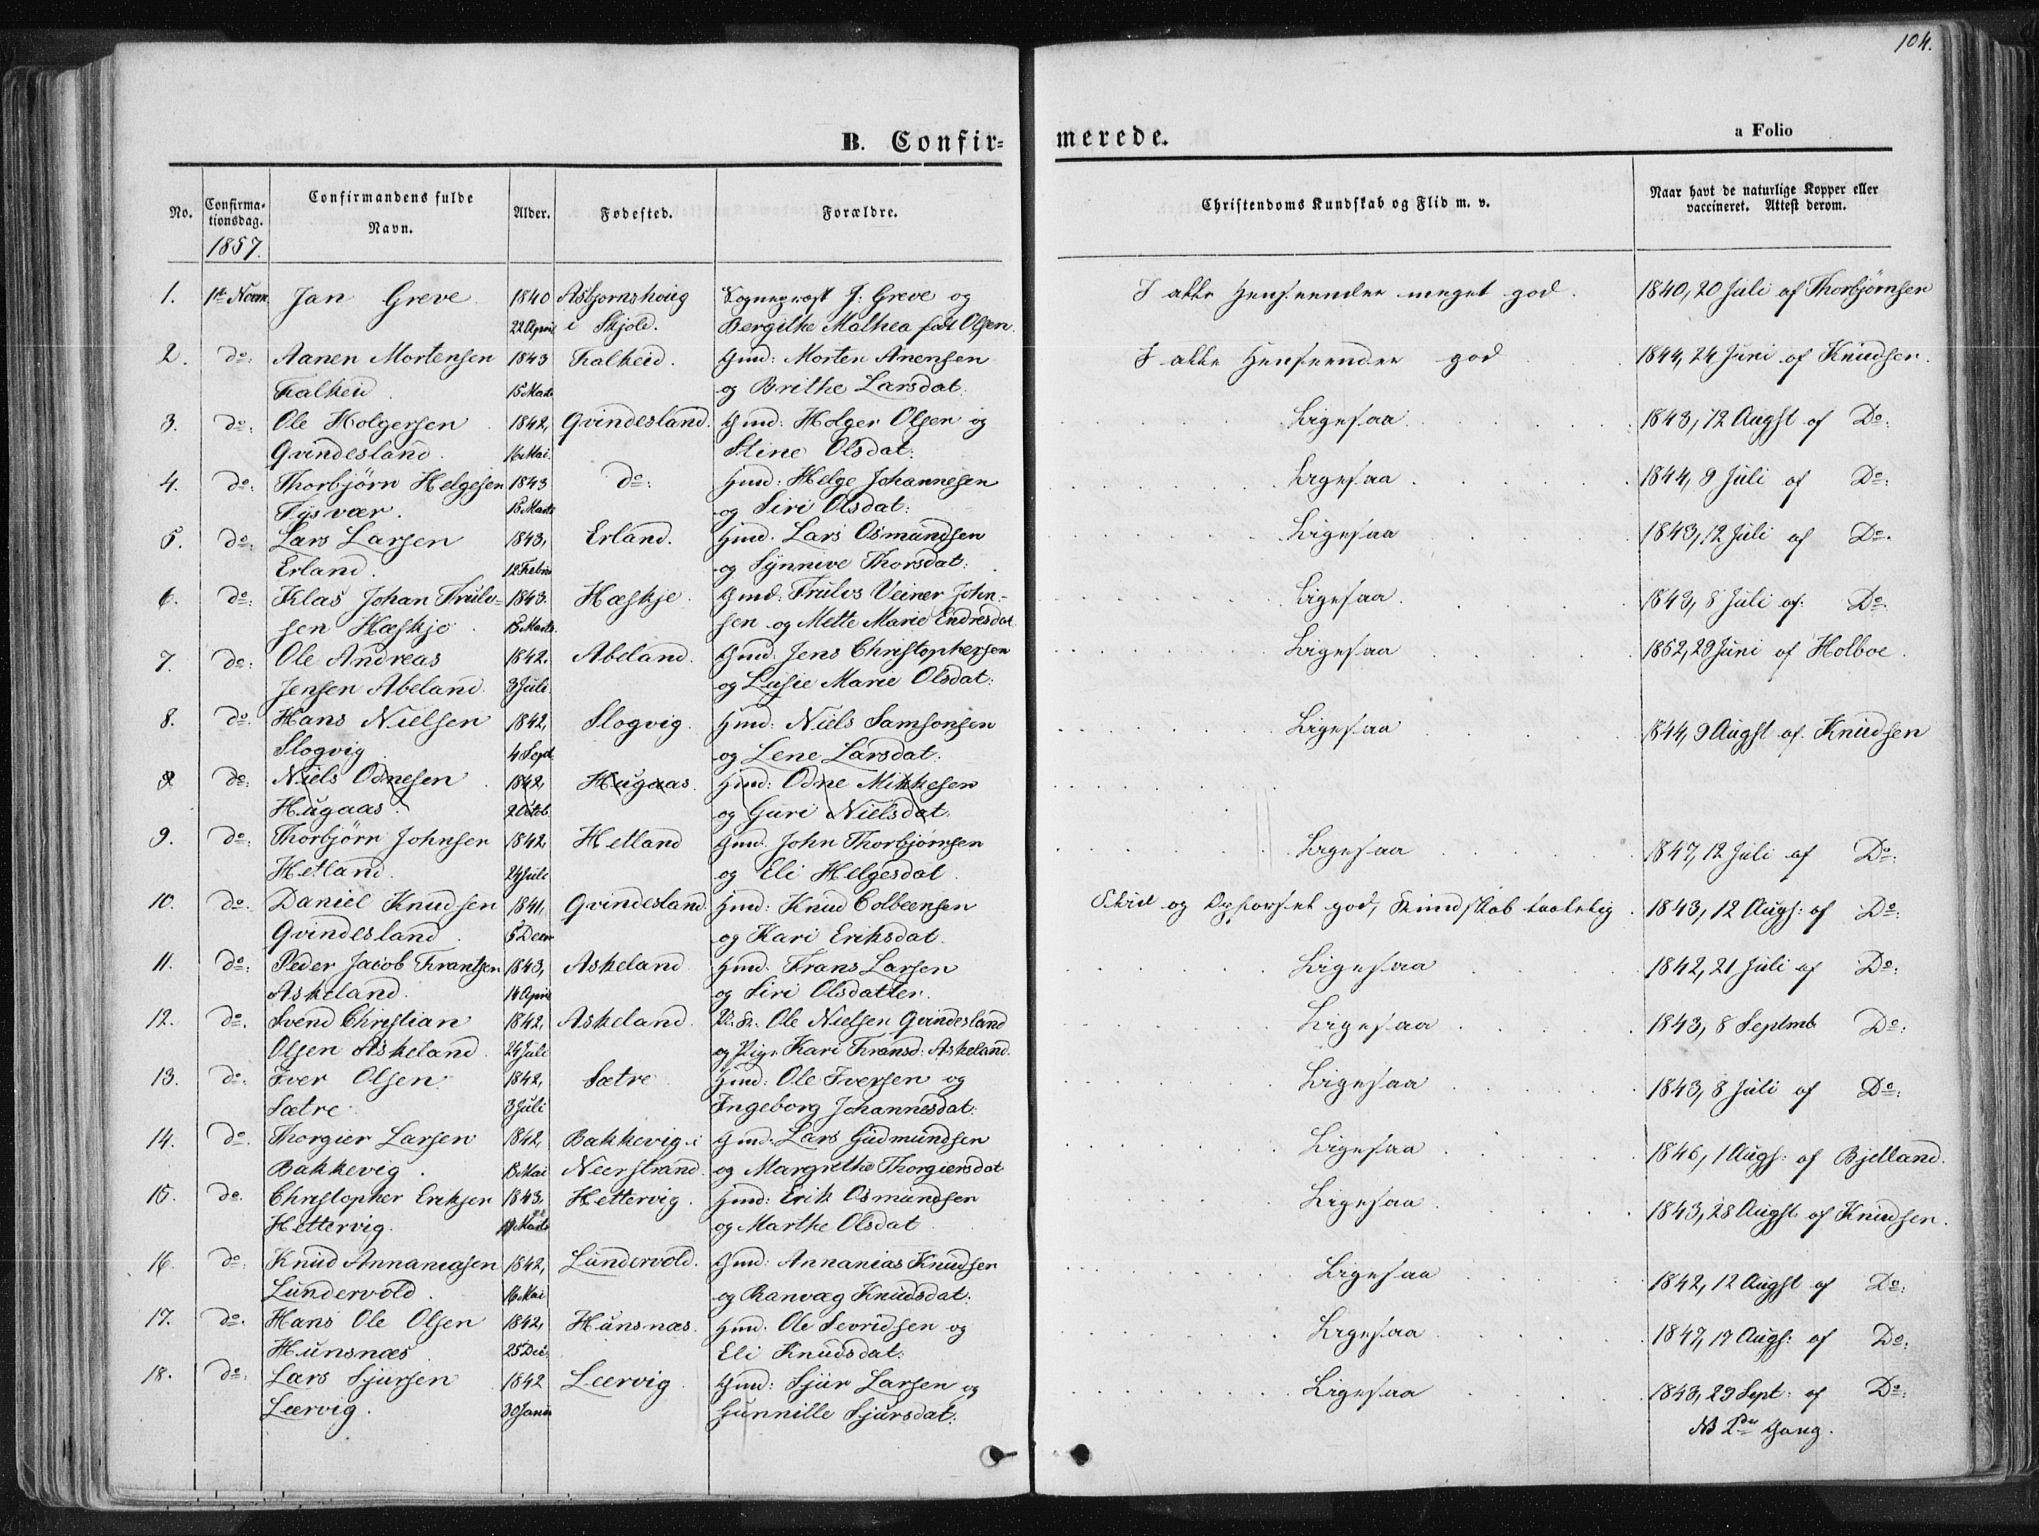 104.
B. Confirmerede.
a Folio
No.
Confirmationsdag.
1857.
Confirmandens fulde Navn.
Alder.
Fødested.
Forældre.
Christendoms Kundskab og Flid m. v.
Naar havt de naturlige Kopper eller vaccineret. Attest derom.
1. 1te Novm Jan Greve 1840 Asbjørnshoug Sognepræst J: Greve og I alle Henseender meget god. 1840, 20 Juli af Thorbjørnsen
22 April i Skjold. Bergithe Mathea født Olsen.
2. do: Aanen Mortensen 1843 Falkeid. Gmd: Morten Anensen I alle Henseender god 1844, 24 Juni af Knudsen.
Falkeid. 15 Marts og Brithe Larsdat.
3. do: Ole Holgersen 1842, Qvindesland. Gmd: Holger Olsen og Ligesaa 1843, 12 Augst af Do:
Qvindesland. 16 Mai. Stine Olsdat:
4. do: Thorbjørn Helgesen 1843 do: Hmd: Helge Johannesen Ligesaa 1844, 9 Juli af Do:
Tysvær. 15 Marts og Siri Olsdat:
5. do: Lars Larsen 1843, Erland. Hmd. Lars Osmundsen Ligesaa 1843, 12 Juli af Do.
Erland. 12 Febr og Synneve Thorsdat:
6. do: Klas Johan Trulv- 1843. Hæskje. Gmd: Trulvs Veiner John- Ligesaa 1843, 8 Juli af: Do.
sen Hæskje 15 Marts. sen og Mette Marie Endresdat
7. do: Ole Andreas 1842. Abeland. Gmd: Jens Christophersen Ligesaa 1852, 29 Juni af Holboe.
Jensen Abeland. 3 Juli. og Lusie Marie Olsdat:
8. do: Hans Nielsen 1842, Slogvig. Hmd: Niels Samsonsen Ligesaa 1844, 9 Augst af Knudsen
Slogvig 4 Sept og Lene Larsdat:
9 do: Niels Odnesen 1842, Hugaas. Hmd: Odne Mikkesen
Hugaas. 2 Octob og Guri Nielsdat:
9. do: Thorbjørn Johnsen 1842, Hetland Gmd. John Thorbjørnsen Ligesaa 1847, 12 Juli af Do:
Hetland. 24 Juli og Eli Helgesdat.
10. do: Daniel Knudsen 1841, Qvindesland Hmd: Knud Colbeensen Flid og Opførsel god, Kundskab taalelig. 1843, 12 Augs: af Do:
Qvindesland. 5 Decm og Kari Eriksdat.
11. do: Peder Jacob Frantsen 1843, Askeland Hmd. Frans Larsen Ligesaa 1842, 21 Juli af Do:
Askeland. 14 April og Siri Olsdatter.
12. do. Svend Christian 1842, Askeland. Ole Nielsen Qvindesland Ligesaa 1843, 8 Septmb Do:
Olsen Askeland. 24 Juli og Pige Kari Fransd: Askeland.
13. do: Iver Olsen 1842, Sætre Hmd: Ole Iversen og Ligesaa 1843, 8 Juli af Do:
Sætre 3 Juli Ingeborg Johannesdat:
14. do: Thorgier Larsen 1842, Bakkevig i Gmd: Lars Gudmundsen Ligesaa 1846, 1 Augs: af Bjelland.
Bakkevig. Mai Neerstrand. og Margrethe Thorgiersdat
15. do. Christopher Eriksen 1843, Hettervig. Hmd: Erik Osmundsen Ligesaa 1843, 28 Augst. af Knudsen.
Hettervig. Marts og Marthe Olsdat
16. do: Knud Annaniasen 1842, Lundervold. Gmd: Annanias Knudsen Ligesaa 1842, 12 Augst af Do:
Lundervold. 16 Mai og Ranvæg Knudsdat:
17. do. Hans Ole Olsen 1842, Hunsnæs. Hmd. Ole Sevridsen og Ligesaa 1847, 17 Augs: af Do:
Hunsnæs 25 Dec: Eli Knudsdat:
18. do: Lars Sjursen 1842 Leervig Gmd: Sjur Larsen og Ligesaa 1843, 23 Sept: af Do:
Leervig. 30 Janu Gunnille Sjursdat:
NB 2den Gang.